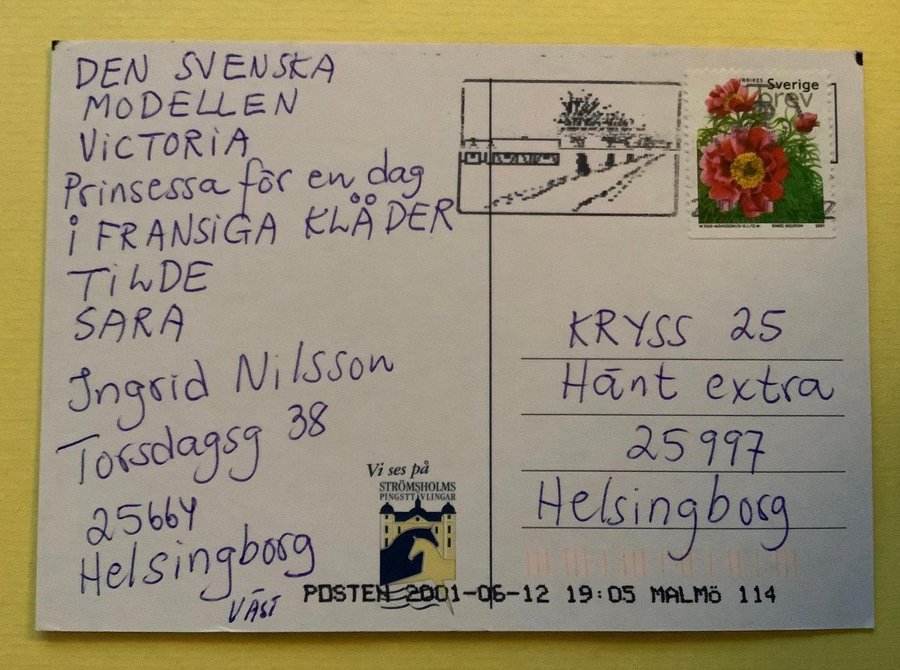 DEN SVENSKA
MODELLEN
ViCTORiA
Prinsessa för en dag
i FRANSiGA KLÄDER
TiLDE
SARA
Ingrid Nilsson
Torsdagsg 38
25664
Helsingborg
VÄST
Vi ses på
STRÖMSHOLMS
PINGSTTÄVLINGAR
INRIKES
Sverige
brev
2001
KRYSS 25
Hänt extra
25997
Helsingborg
POSTEN 2001-06-12 19:05 MALMÖ 114